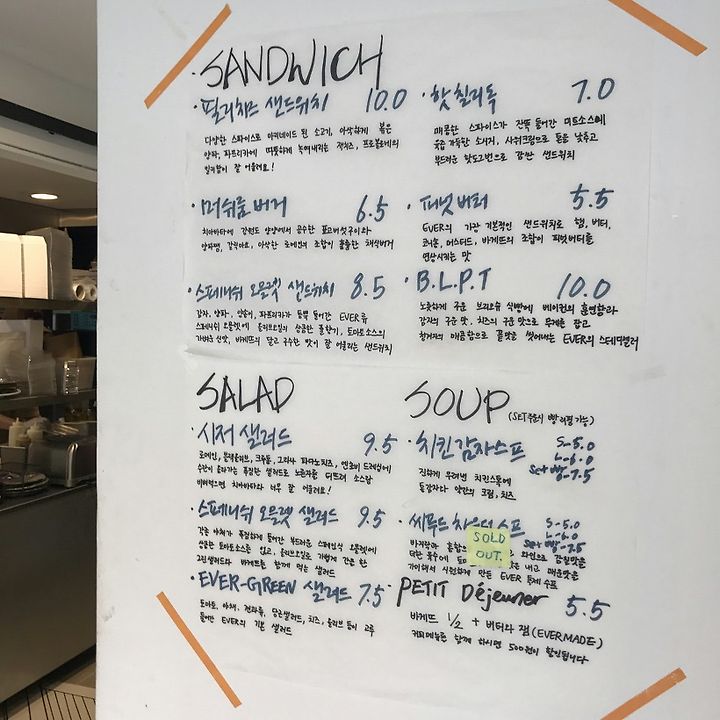 SANDWICH
· 필리치즈 샌드위치 10.0
다양한 스파이스로 마리네이드 된 소고기, 아삭하게 볶은
양파, 파프리카에 따뜻하게 녹여내리는 잭치즈, 프로볼로네의
잘 어울려요!
· 핫칠리독 7.0
매콤한 스파이스가 잔뜩 들어간 미트소스에
육즙 가득한 소시지, 사워크림으로 톤을 낮추고
부드러운 핫도그번으로 감싼 샌드위치
· 머쉬룸버거 6.5
치아바타에 강원도 양양에서 공수한 표고버섯구이와
양파잼, 갈릭마요, 아삭한 로메인의 조합이 훌륭한 채식버거
· 피넛버터 5.5
EVER의 가장 기본적인 샌드위치로 햄, 버터,
코니숑, 머스터드, 바게뜨의 조합이 피넛버터를
연상시키는 맛
· 스페니쉬 오믈렛 샌드위치 8.5
감자, 양파, 양송이, 파프리카가 듬뿍 들어간 EVER류
스페니쉬 오믈렛에 올리브오일의 상큼한 풀향기, 토마토소스의
가벼운 신맛, 바게뜨의 달고 구수한 맛이 잘 어울리는 샌드위치
· B.L.P.T 10.0
노릇하게 구운 브리오슈 식빵에 베이컨의 훈연향과
감자의 구운 맛, 치즈의 구운 맛으로 무게를 잡고
청겨자의 매콤함으로 끝맛을 씻어내는 EVER의 스테디셀러
SALAD
· 시저 샐러드 9.5
로메인, 블랙올리브, 크루통, 그라나 파다노치즈, 엔초비 드레싱에
수란이 올라가는 푸짐한 샐러드로 노른자를 터뜨려 소스랑
비벼먹으면 치아바타와 너무 잘 어울려요!
· 스페니쉬 오믈렛 샐러드 9.5
각종 야채가 푸짐하게 들어간 부드러운 스페인식 오믈렛에
상큼한 토마토소스를 얹고, 올리브오일로 가볍게 간을 한
그린샐러드와 바게뜨를 함께 먹는 샐러드
· EVER-GREEN 샐러드 7.5
토마토, 야채, 당근샐러드, 치즈, 올리브 등이 고루
들어간 EVER의 기본 샐러드
SOUP (SET주문시 빵 리필 가능)
· 치킨감자스프 S-5.0
L-6.0
Set+빵-7.5
진하게 우려낸 치킨스톡에
들감자와 약간의 크림, 치즈
· 씨푸드 차우더스프 S-5.0
L-6.0
Set+빵-7.5
SOLD
OUT.
바지락과 홍합 와인으로 감칠맛을
더한 육수에 내고 매운맛을
가미해서 시원하게 만든 EVER 특제 수프
· PETIT Déjeuner 5.5
바게뜨 1/2 + 버터와 잼(EVERMADE)
커피메뉴를 함께 하시면 500원이 할인됩니다